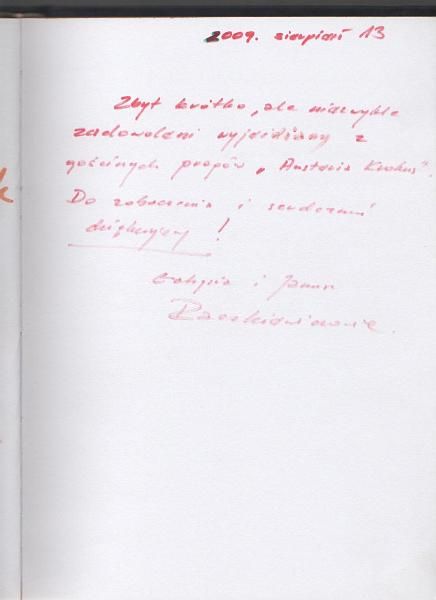 2009. sierpień 13
Zbyt krótko, ale niezwykle
zadowoleni wyjeżdżamy z
gościnnych progów „Austeria Krokus".
Do zobaczenia i serdecznie
dziękujemy!
i Janusz